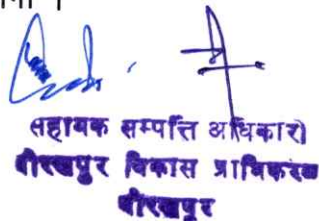 सहायक सम्पत्ति अधिकारी
गोरखपुर विकास प्राधिकरण
गोरखपुर